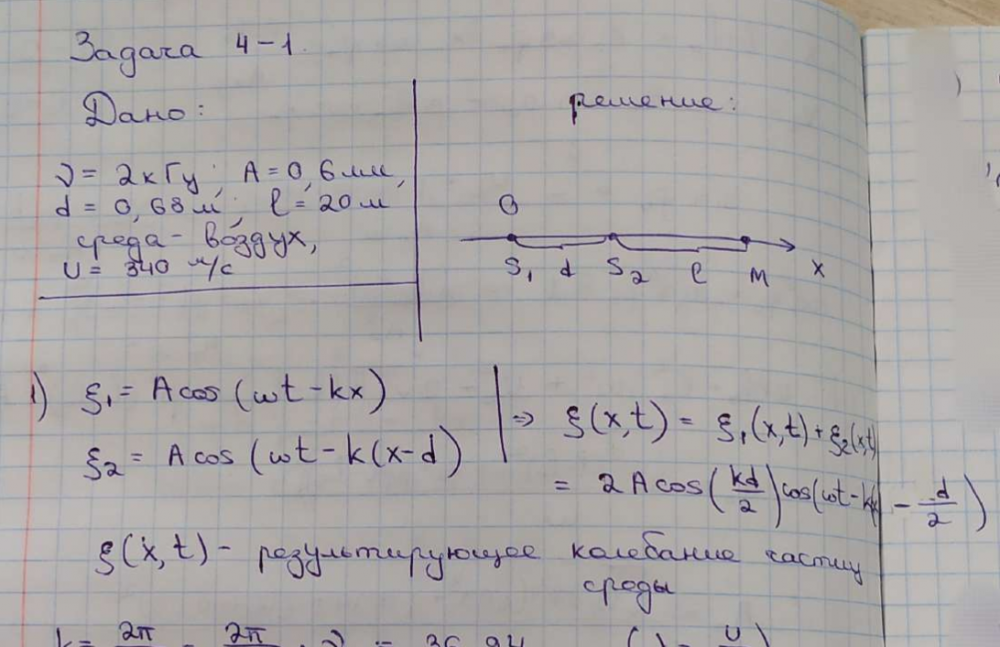 Задача 4-1.
Дано:
решение:
ν = 2кГц; A = 0,6мм,
d = 0,68м; ℓ = 20м
среда - воздух,
υ = 340 м/с
O
S₁ d S₂ ℓ M x
1) ξ₁ = A cos (ωt - kx)
ξ₂ = A cos (ωt - k(x-d)
⇒ ξ(x,t) = ξ₁(x,t) + ξ₂(x,t)
= 2A cos(kd/2) cos(ωt - k - d/2)
ξ(x,t) - результирующее колебание частиц
среды
k = 2π = 2π · ν = 36,94 (λ = υ)